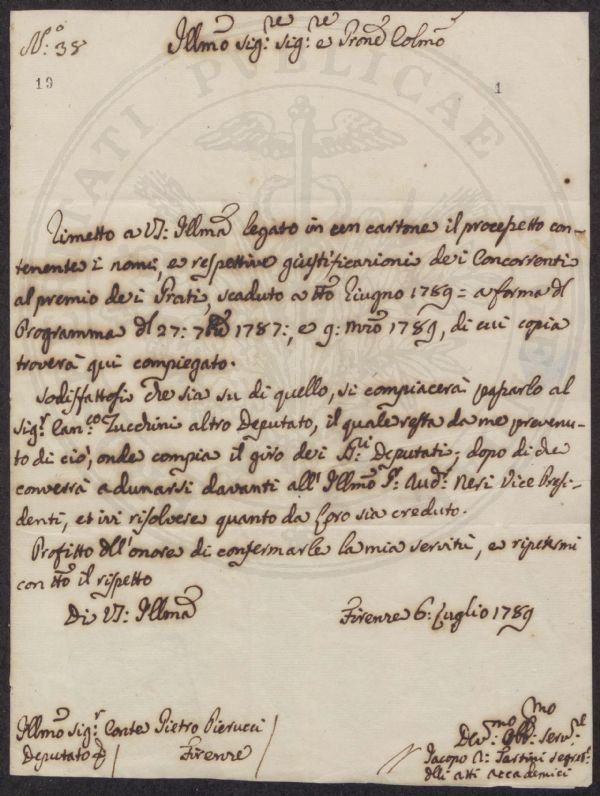 N.° 38
Illmo Sig.re Sig.re e Prone Colmo
19
1
Rimetto a VS: Illma legato in un cartone il prospetto con-
tenente i nomi, e respettive giustificazioni dei Concorrenti
al premio dei Prati, scaduto a tto Giugno 1789 = a forma dl
Programma dl 27: 7bre 1787:, e 9: Mrzo 1789, di cui copia
troverà qui compiegato.
Sodisfattosi che sia su di quello, si compiacerà passarlo al
Sig.r Can.co Zucchini altro Deputato, il quale resta da me prevenu-
to di ciò, onde compia il giro dei Deputati; dopo di che
converrà adunarsi davanti all' Illmo S.r Aud.r Neri Vice Presi-
denti, et ivi risolvere quanto da loro sia creduto.
Profitto dll'onore di confermarle la mia servitù, e ripetermi
con tto il rispetto
Di VS: Illma
Firenze 6: Luglio 1789
Illmo Sig.r Conte Pietro Pierucci
Deputato
Firenze
Dev:mo Obb:mo Serv.e
Jacopo Sartini Segret.
dlli atti accademici
PUBLICAE